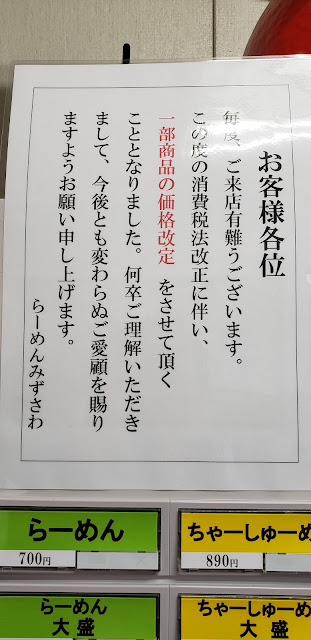 お客様各位
毎度、ご来店有難うございます。
この度の消費税法改正に伴い、
一部商品の価格改定 をさせて頂く
こととなりました。何卒ご理解いただき
まして、今後とも変わらぬご愛顧を賜り
ますようお願い申し上げます。
らーめんみずさわ
らーめん
700円
ちゃーしゅーめ
890円
らーめん
大盛
ちゃーしゅーめ
大盛